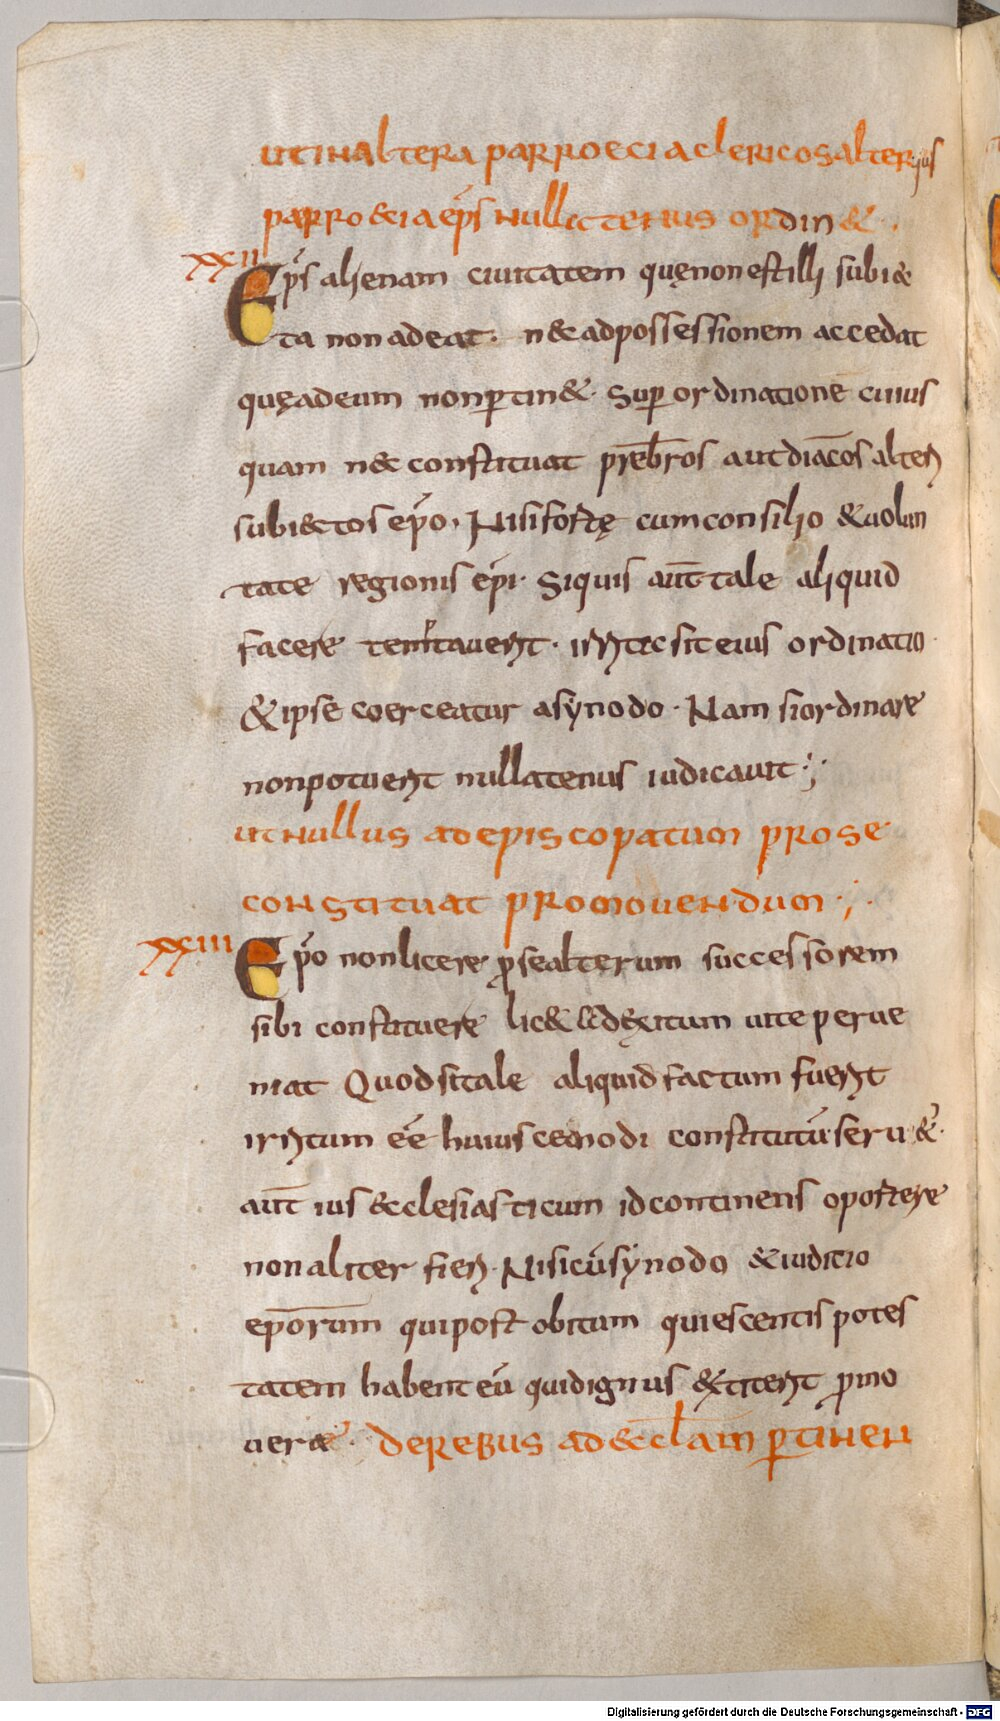 ut in altera parroecia clericos alterius
parro&ia ep̄s nullictenus ordin&.
XXII Ep̄s alienam ciuitatem quę non est illi subi&
ta non adeat. n&ad possessionem accedat
quę ad eum non ꝑtin&. Suꝑ ordinationē cuius
quam n& constituat p̄rēb̄ros aut diac̄os alteri
subi&tos ep̄o. Nisi fortę cum consilio &uolun
tate regionis ep̄i. Si quis aūt tale aliquid
facere temtauerit. irritc sit eius ordinatio
&ipse coerceatur a synodo. Nam si ordinare
non potuerit nullatenus iudicauit:;
ut nullus ad episcopatum pro se
constituat promouendum.;.
XXIII Ep̄o non licere ꝓ se alterum successorem
sibi constituere lic& ad exitum uite perue
niat Quod si tale aliquid factum fuerit
irritum eē huiuscemodi constitutū. seru&.
aūt ius &clesiasticum id continens oportere
non aliter fieri. Nisi cū synodo &iuditio
ep̄orum qui post obitum quiescentis potes
tatem habent eū qui dignus &titerit ꝓmo
uere. de rebus ad &cl̄am ꝑtinen
Digitalisierung gefördert durch die Deutsche Forschungsgemeinschaft - DFG